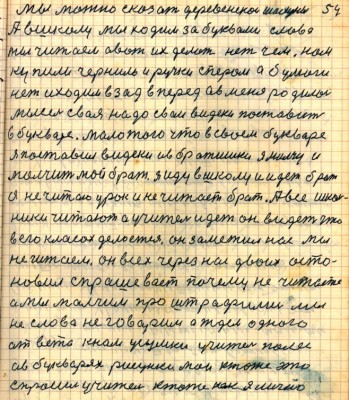 мы можно сказат деревенски школники 54
А вшколу мы ходим за буквами слова
мы читаем авот их делит нет чем, нам
купили чернила и ручки спером а бумоги
нет иходим взад вперед авменя родилас
мысел своя надо свои видеки поставит
вбукваре. мало того что всвоем букваре
я поставил видеки ив братишки я молчу и
молчит мой брат. я иду вшколу иидет брат
я нечитаю урок и нечитает брат. А все школ-
ники читают а учител идет он видет что
вего класах делается, он заметил нас мы
нечитаем, он всех через нас двоих оста-
новил спрашевает почему не читаете
а мы молчим про штрафили мы
не слова не говорим а ждем одного
ответа кнам учител полез
ав букварях рисунки мои ктоже это
спросил учител ктоже как я лично